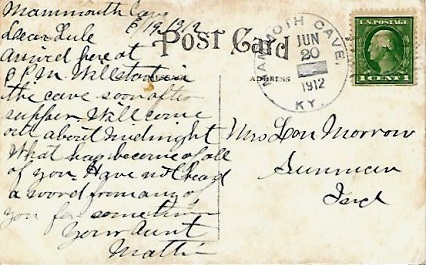 Mammouth Cave
6/19/1912
Dear Lule
Arrived here at
P.M. Will start in
the cave soon after
supper Will come
out about midnight
What has become of all
of you Have not heard
a word from any of
you for sometime
Your Aunt
Mattie
Post Card
ADDRESS
MAMMOTH CAVE,
JUN
20
1912
KY.
U.S. POSTAGE
1 CENT 1
Mrs Lon Morrow
Sunman
Ind